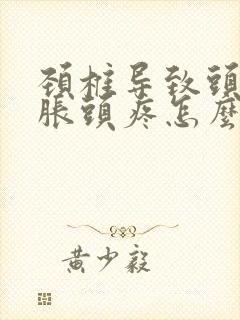 頚柱导致頭
脹頭疼怎麼
黄少毅